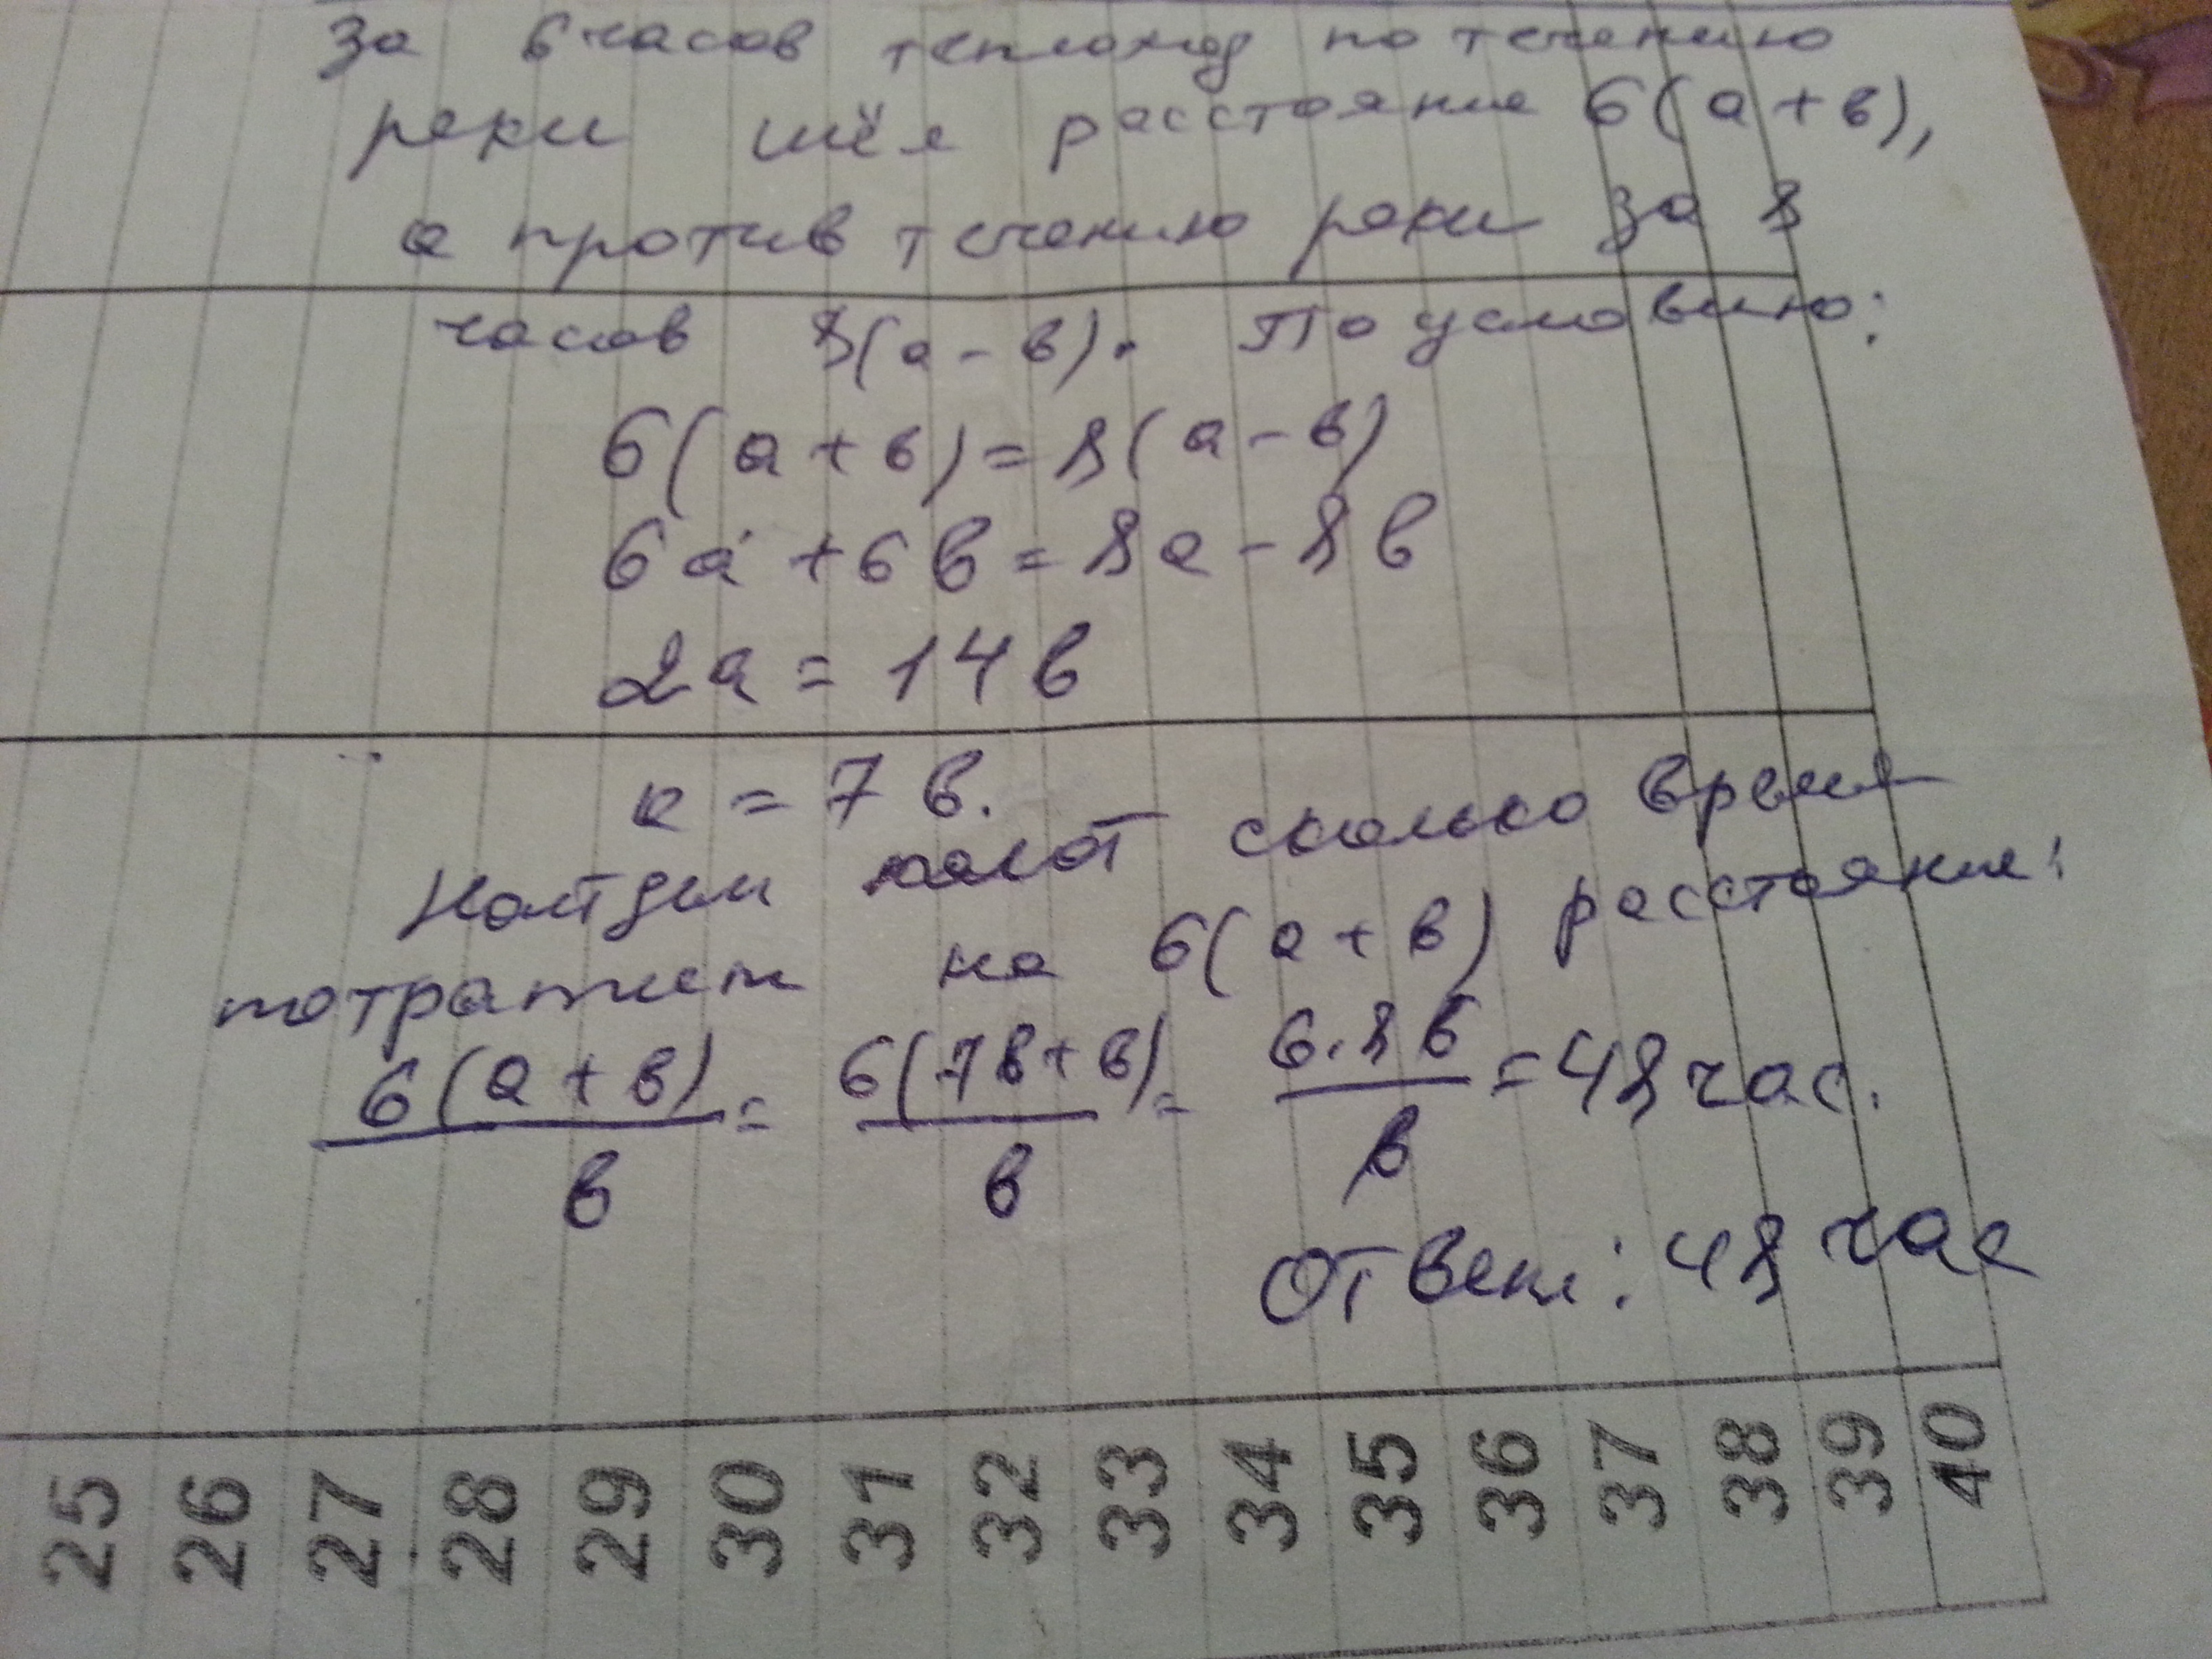 За 6 часов теплоход по течению
реки шёл расстояние 6(а+в),
а против течению реки за 8
часов 8(а-в). По условию:
6(а+в)=8(а-в)
6а+6в=8а-8в
2а=14в
а=7в.
Найдем плот сколько время
потратит на 6(а+в) расстояние:
6(а+в)/в = 6(7в+в)/в = 6.8в/в = 48 час.
Ответ: 48 час
25 26 27 28 29 30 31 32 33 34 35 36 37 38 39 40